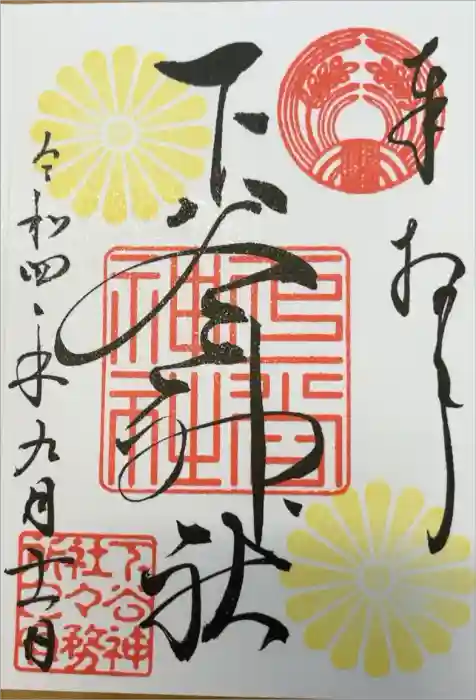 奉拝
下谷神社
令和四年九月十一日
下谷神社
下谷神
社々務
所之印